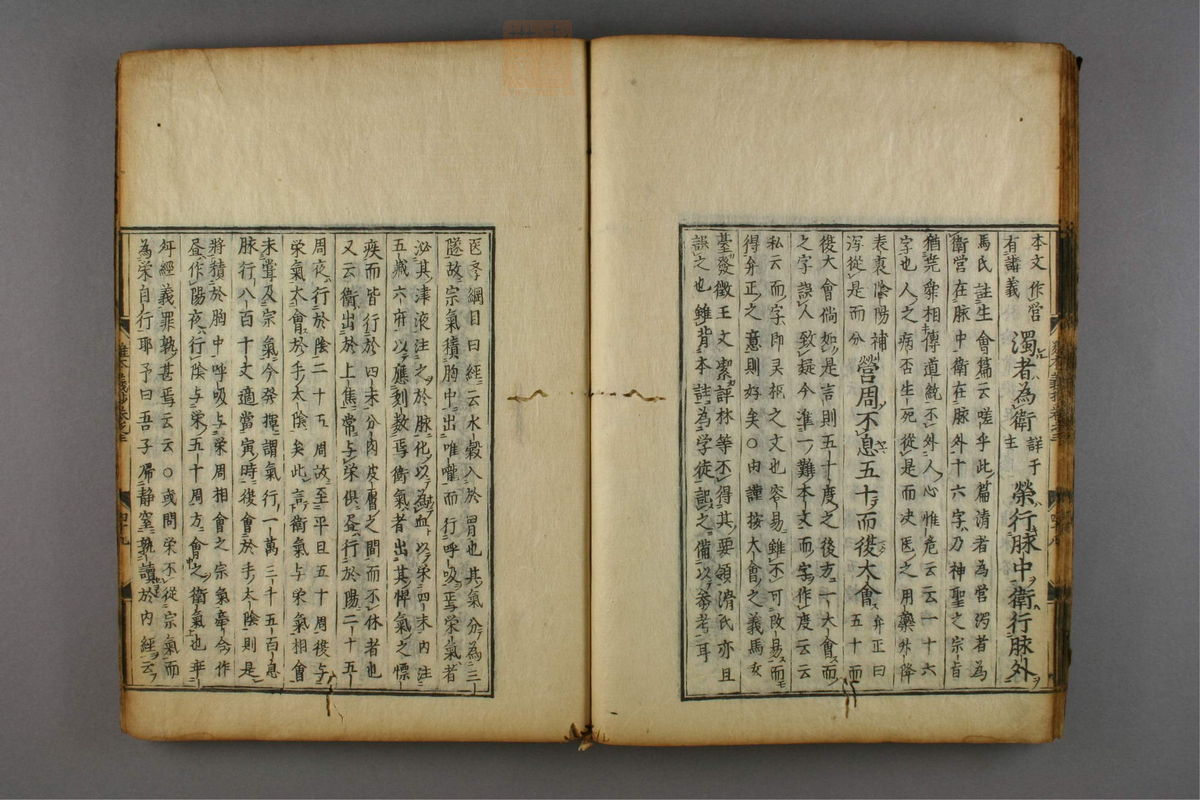 本文作営有講義 濁者為衛 詳于主 榮行脉中衛行脉外
馬氏註生會篇云嗟乎此篇清者為営濁者為
衛営在脉中衛在脉外十六字乃神聖之宗旨
猶堯舜相傳道統不外人心惟危云云一十六
字也人之病否生死從是而决医之用藥升降
表裏陰陽補瀉從是而分 營周不息五十而復大會 弁正曰五十而
復大會倘如是言則五十度之後方一大會而
之字誤人致疑今準一難本文而字作度云云
私云而字即灵枢之文也容易雖不可改易而
得弁正之意則好矣○由謹按大會之義馬玄
臺發微王文潔評林等不得其要領滑氏亦且
誤之也雖背本註為学徒記之備以参考耳
医學綱目曰經云水穀入於胃也其氣分為三
隧故宗氣積胸中出喉嚨而行呼吸焉栄氣者
泌其津液注之於脉化以為血以栄四末内注
五蔵六府以應刻数焉衛氣者出其悍氣之慓
疾而皆行於四末分肉皮膚之間而不休者也
又云衛出於上焦常与栄倶昼行於陽二十五
周夜行於陰二十五周故至平旦五十周後与
栄氣太會於手太陰矣此言衛氣与栄氣相會
未嘗及宗氣今發揮謂氣行一萬三千五百息
脉行八百十丈適當寅時復會於手太陰則是
將積於胸中呼吸与栄周相會之宗氣牽合作
昼作陽夜行陰与栄五十周方會之衛氣也
年經義罪孰甚焉云云○或問栄不從宗氣而
為栄自行耶予曰吾子帰静室孰讀於内經云